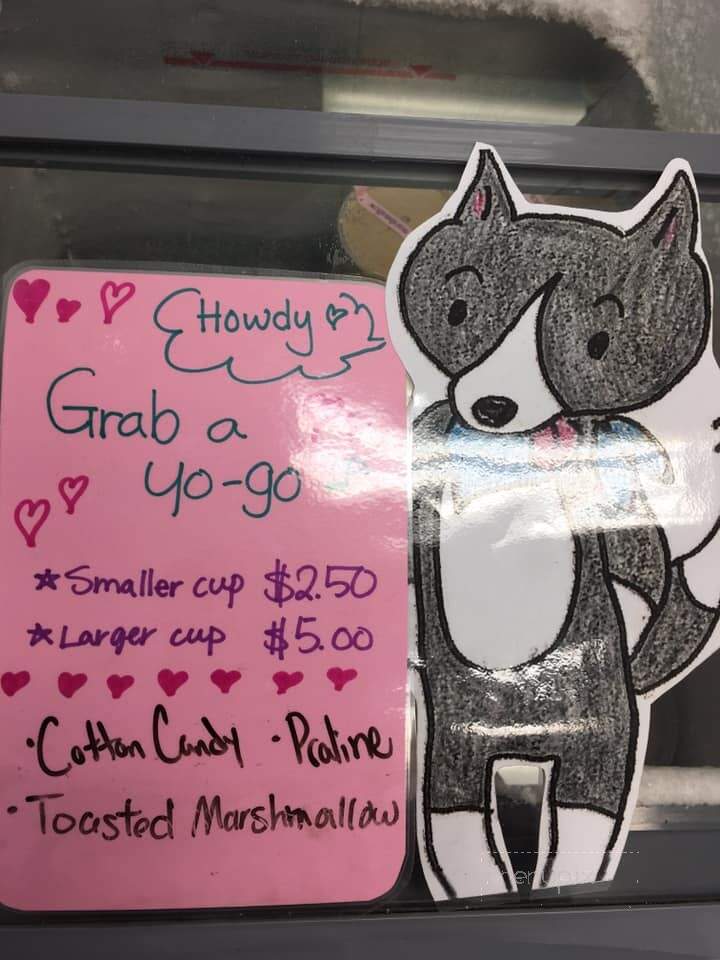 Howdy
Grab a
yo-go
Smaller cup $2.50
Larger cup $5.00
·Cotton Candy ·Praline
·Toasted Marshmallow
menupix